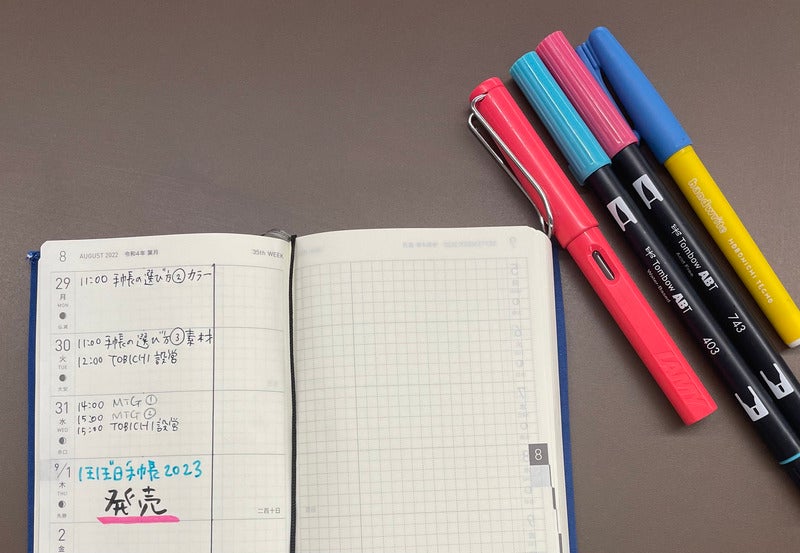 8 AUGUST 2022 令和4年 葉月 35th WEEK
29 11:00 手帳の選び方②カラー
月
MON
仏滅
30 11:00 手帳の選び方③素材
火 12:00 TOBICHI設営
TUE
大安
31 14:00 MTG①
水 15:00 MTG②
WED 15:00 TOBICHI設営
赤口
9/1 ほぼ日手帳2023
木 発売
THU
先勝 二百十日
2
金
8
LAMY
Tombow ABT
Water-Based
403
Tombow ABT
743
HOBONICHI TECHO